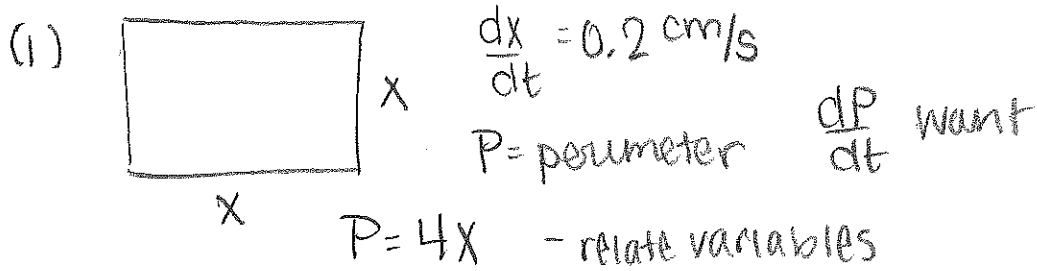 (1)
dx/dt = 0.2 cm/s
x
P = perimeter dP/dt want
x
P = 4x - relate variables